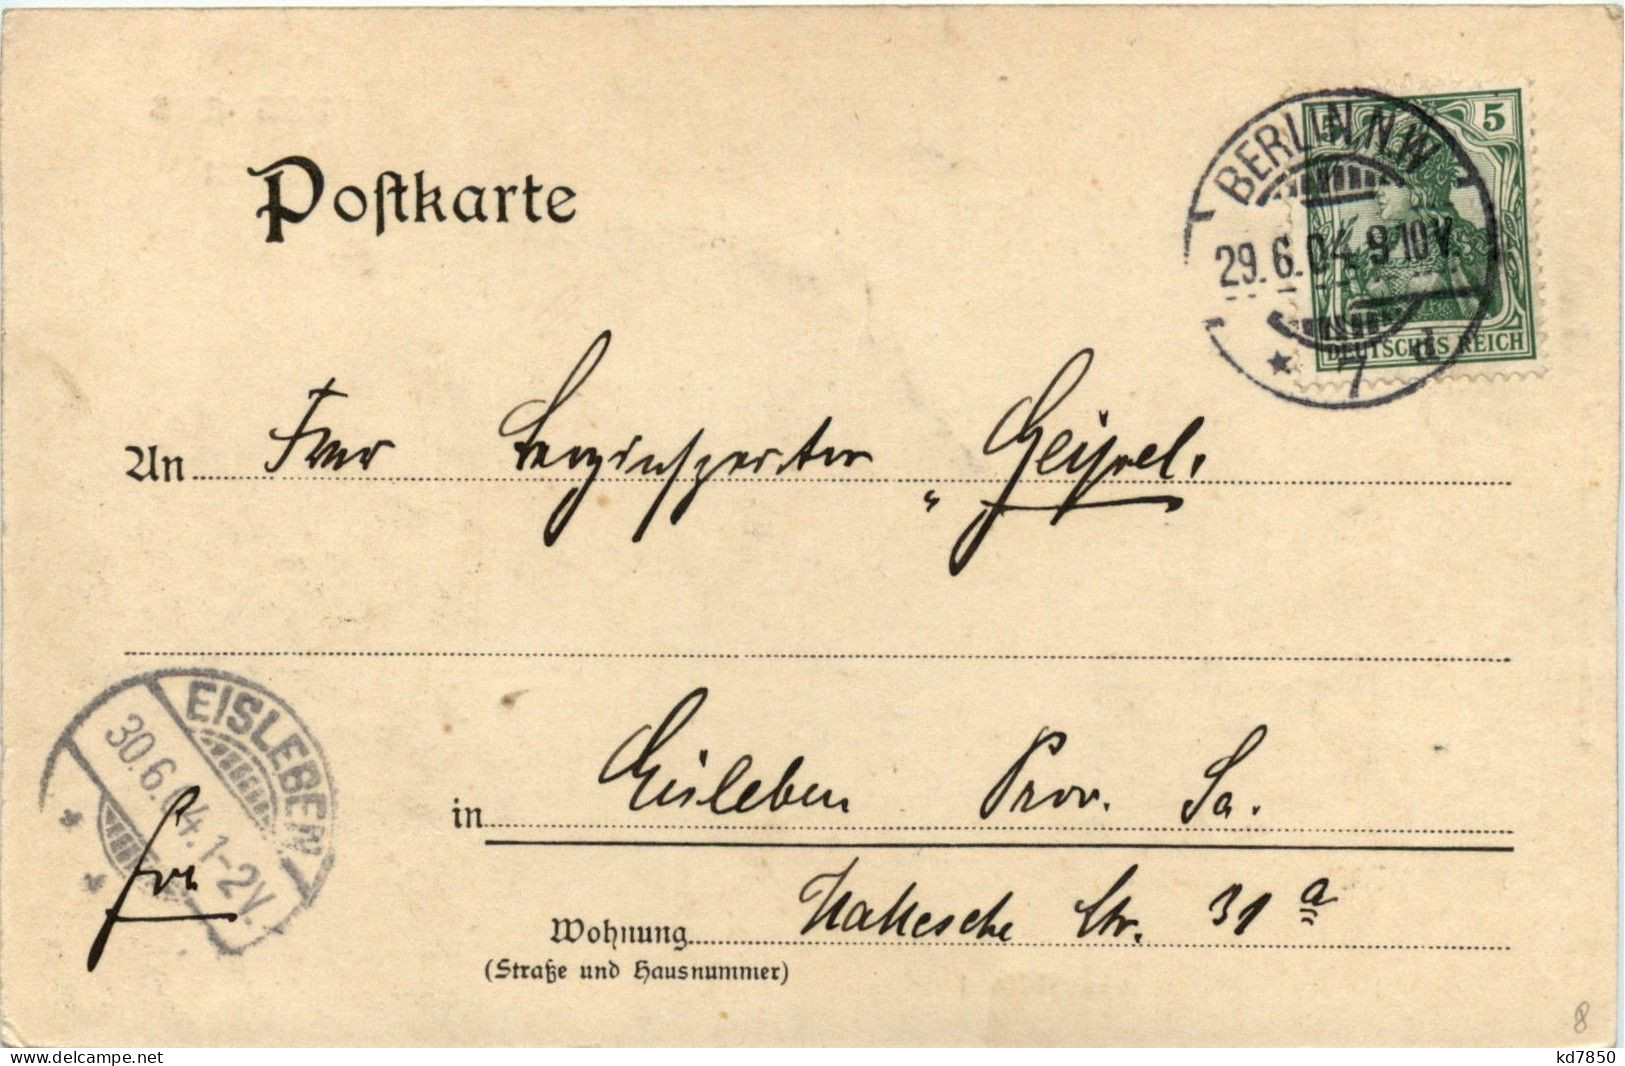 Postkarte
5 5
BERLIN.N.W
29.6.04. 9-10V.
* 7 d
DEUTSCHES REICH
An Frau Berginspektor
„Geipel.
EISLEBEN
30.6.04. 1-2V.
* *
in Eisleben Prov. Sa.
frei
Wohnung Hallesche Str. 31 a
(Straße und Hausnummer)
8
kd7850
www.delcampe.net